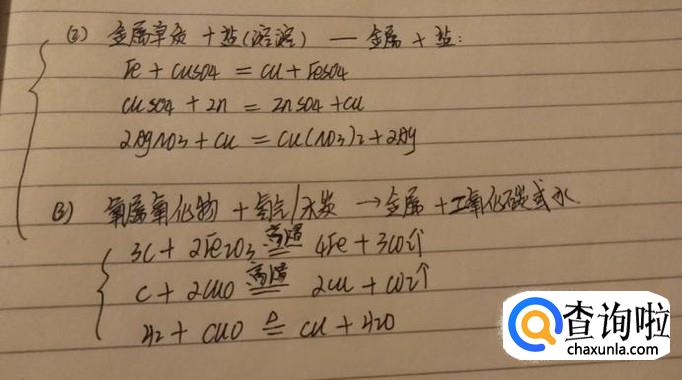 (2) 金属单质 + 盐(溶液) — 金属 + 盐:
Fe + CuSO4 = Cu + FeSO4
CuSO4 + Zn = ZnSO4 + Cu
2AgNO3 + Cu = Cu(NO3)2 + 2Ag
(3) 氧属氧化物 + 氢气/木炭 → 金属 + 二氧化碳或水
3C + 2Fe2O3 高温== 4Fe + 3CO2↑
C + 2CuO 高温== 2Cu + CO2↑
H2 + CuO △= Cu + H2O
查询啦
chaxunla.com